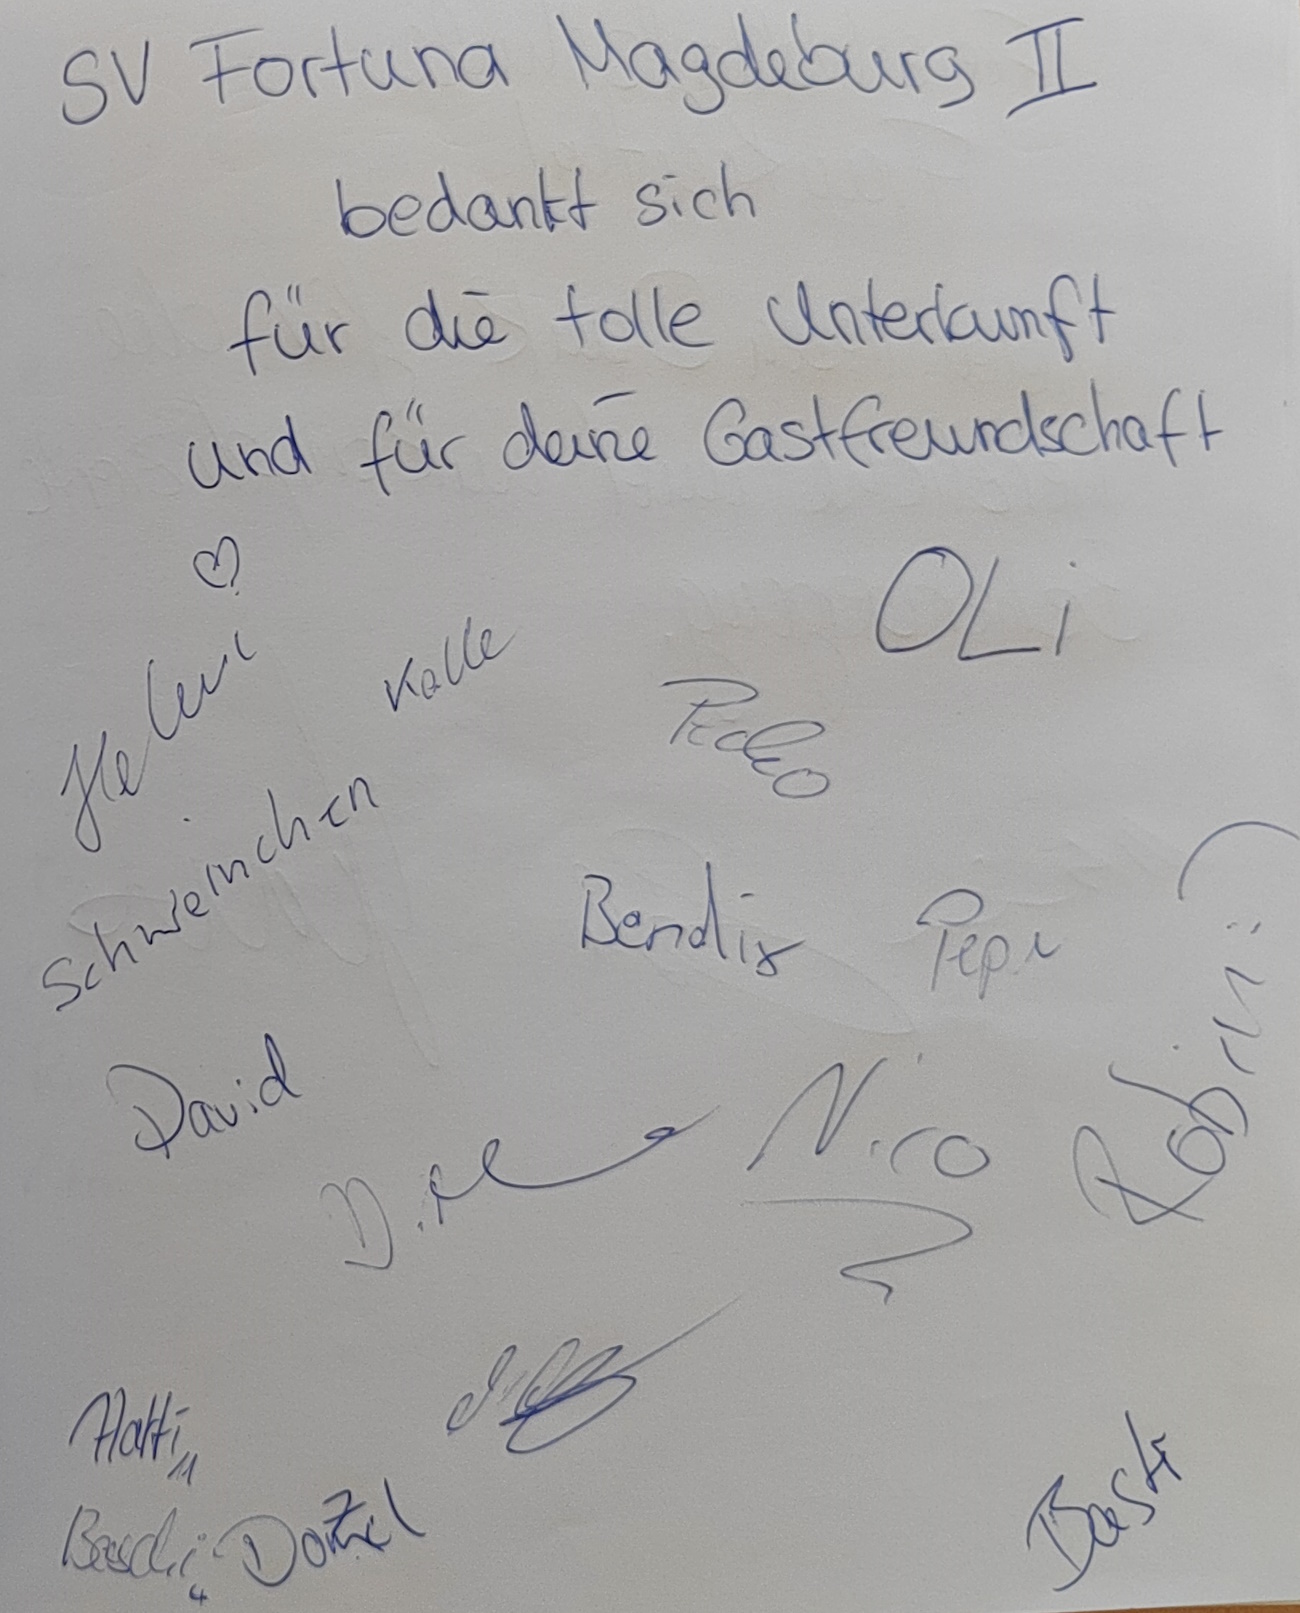 SV Fortuna Magdeburg II
bedankt sich
für die tolle Unterkunft
und für deine Gastfreundschaft
OLi
Kalle
Helmi
Schweinchen
Bendix
Pepe
Robin :)
David
Nico
Hatti 11
Baschi 4
Basti